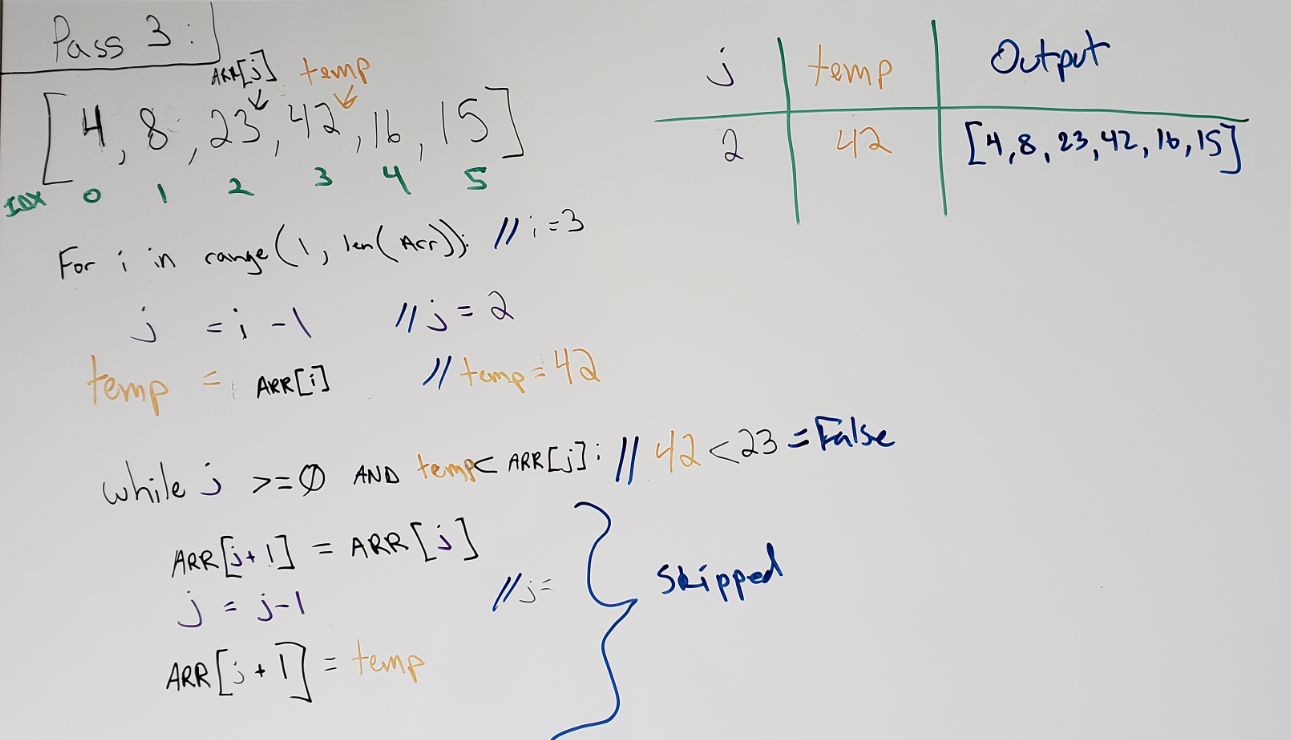 Pass 3:
ARR[j] temp
[4, 8, 23, 42, 16, 15]
IDX 0 1 2 3 4 5
For i in range(1, len(Arr)): // i=3
j = i -1 // j = 2
temp = ARR[i] // temp = 42
while j >=Ø AND temp< ARR[j]: // 42 < 23 = False
ARR[j+1] = ARR[j]
j = j-1 // j=
ARR[j+1] = temp
Skipped
j temp Output
2 42 [4,8,23,42,16,15]